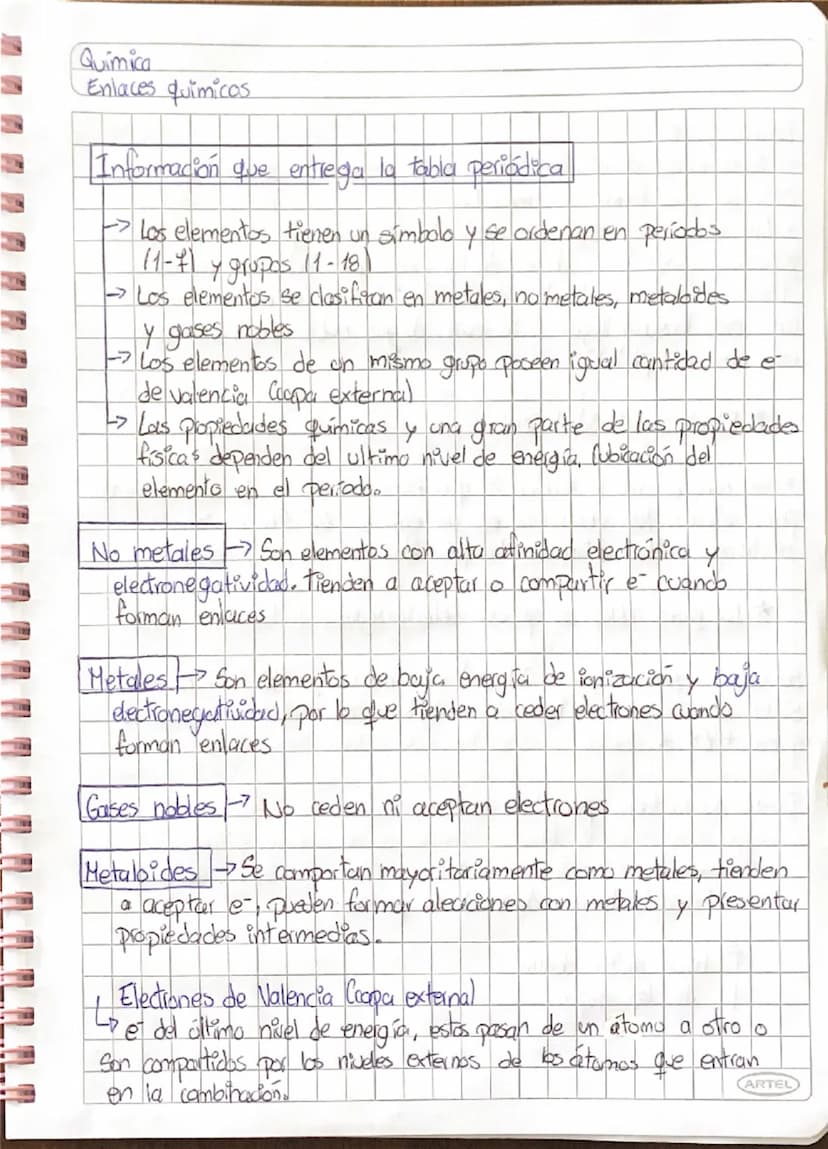 Química
Enlaces químicos
Información que entrega la tabla periódica
→ Los elementos tienen un símbolo y se ordenan en períodos
(1-7) y grupos (1-18)
→ Los elementos se clasifican en metales, no metales, metaloides
y gases nobles
→ Los elementos de un mismo grupo poseen igual cantidad de e-
de valencia (capa externa)
→ Las propiedades químicas y una gran parte de las propiedades
físicas dependen del ultimo nivel de energía, (ubicación del
elemento en el período.
No metales → Son elementos con alta afinidad electrónica y
electronegatividad. Tienden a aceptar o compartir e- cuando
forman enlaces
Metales → Son elementos de baja energía de ionización y baja
electronegatividad, por lo que tienden a ceder electrones cuando
forman enlaces
Gases nobles → No ceden ni aceptan electrones
Metaloides → Se comportan mayoritariamente como metales, tienden
a aceptar e-, pueden formar aleaciones con metales y presentar
propiedades intermedias.
Electrones de Valencia (capa externa)
→ e- del último nivel de energía, estos pasan de un átomo a otro o
son compartidos por los niveles externos de los átomos que entran
en la combinación.
ARTEL